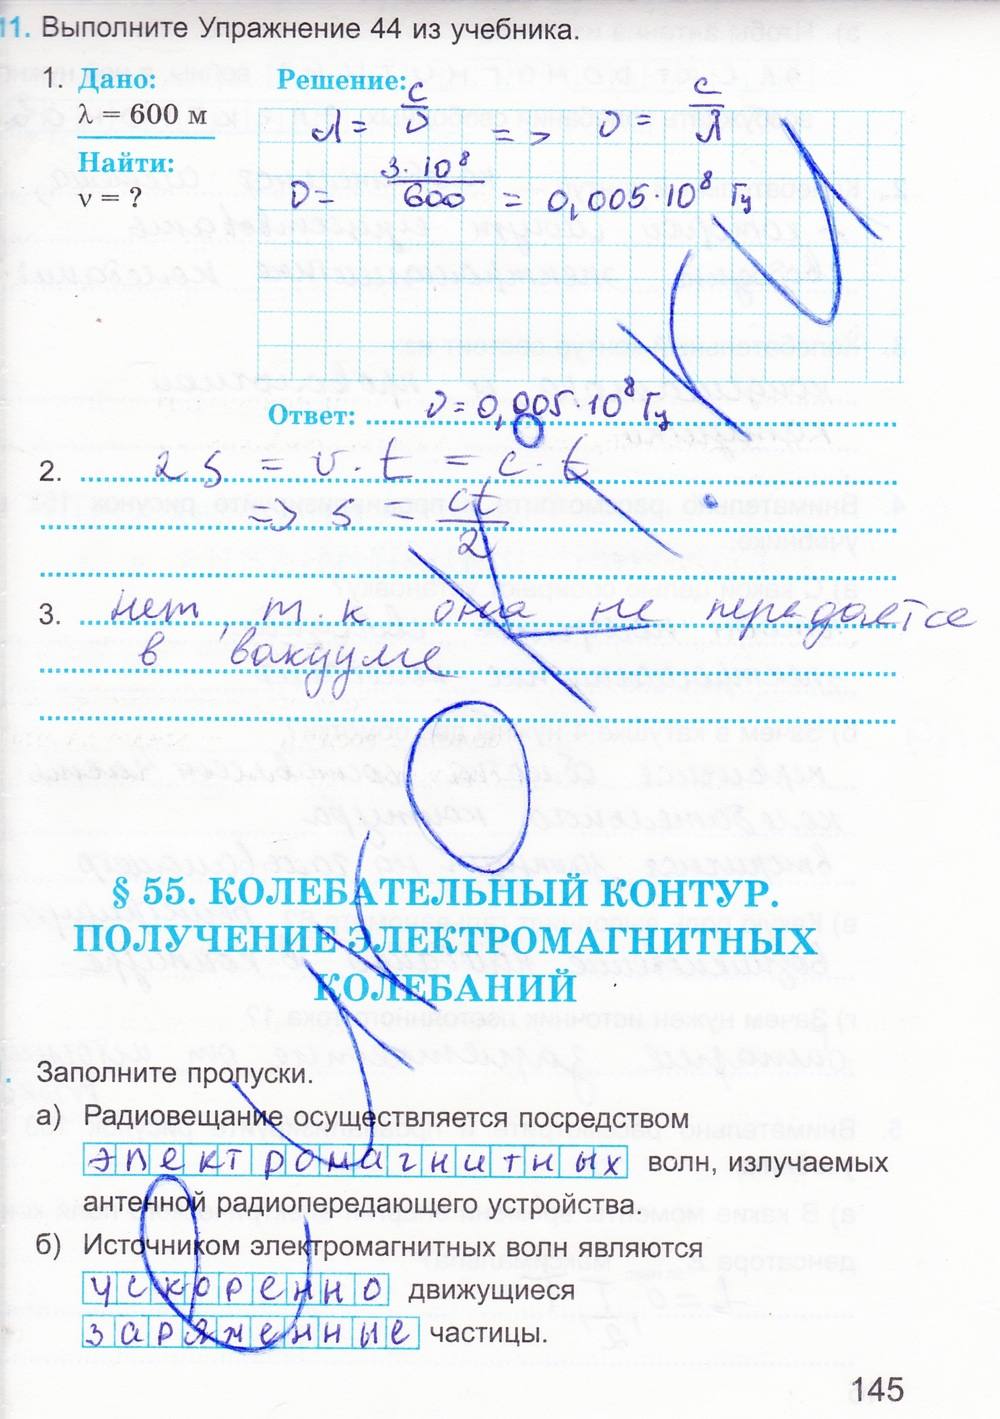 11. Выполните Упражнение 44 из учебника.
1. Дано: Решение:
λ = 600 м
λ = c/υ => υ = c/λ
Найти:
ν = ?
υ = 3·10⁸/600 = 0,005·10⁸ Гц
Ответ: υ = 0,005·10⁸ Гц
2. 2s = υ·t = c·t
=> s = ct/2
3. нет, т.к она не передаётся
в вакууме
§ 55. КОЛЕБАТЕЛЬНЫЙ КОНТУР.
ПОЛУЧЕНИЕ ЭЛЕКТРОМАГНИТНЫХ
КОЛЕБАНИЙ
. Заполните пропуски.
а) Радиовещание осуществляется посредством
электромагнитных волн, излучаемых
антенной радиопередающего устройства.
б) Источником электромагнитных волн являются
ускоренно движущиеся
заряженные частицы.
145